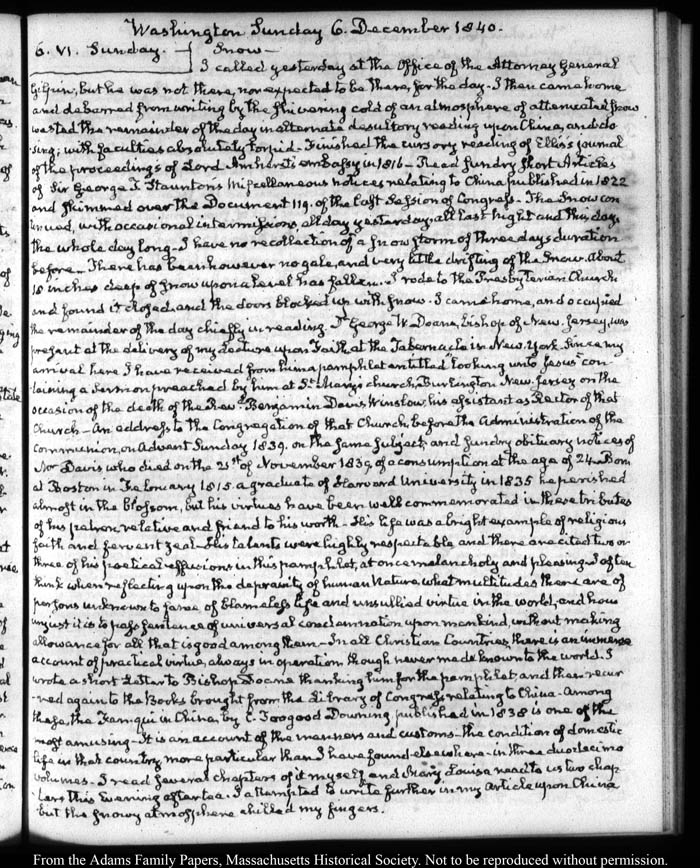 Washington Sunday 6. December 1840.
6. VI. Sunday. Snow—
I called yesterday at the Office of the Attorney General
Gilpin, but he was not there, nor expected to be there, for the day. I then came home
and debarred from writing by the shivering cold of an atmosphere of attenuated snow
wasted the remainder of the day in alternate desultory reading upon China, and do
sing; with faculties absolutely torpid. Finished the cursory reading of Ellis's journal
of the proceedings of Lord Amherst's embassy in 1816—Read sundry short Articles
of Sir George T. Staunton's Miscellaneous notices relating to China published in 1822
and skimmed over the Document 119. of the last Session of Congress. The Snow con
tinued, with occasional intermissions, all day yesterday, all last night and this day
the whole day long—I have no recollection of a snow storm of three days duration
before—There has been however no gale, and very little drifting of the snow. About
18 inches deep of snow upon a level has fallen. I rode to the Presbyterian Church
and found it closed, and the doors blocked up with snow. I came home, and occupied
the remainder of the day chiefly in reading. Dr. George W. Doane, bishop of New-Jersey, was
present at the delivery of my Lecture upon Faith at the Tabernacle in New-York. Since my
arrival here I have received from him a pamphlet entitled "Looking unto Jesus" con
taining a Sermon preached by him at St. Mary's church, Burlington New Jersey on the
occasion of the death of the Revd. Benjamin Davis Winslow, his assistant as Rector of that
Church—An address to the Congregation of that Church, before the Administration of the
communion, on Advent Sunday 1839. on the same subject, and sundry obituary notices of
Mr Davis who died on the 21st of November 1839, of a consumption at the age of 24. Born
at Boston in February 1815. a graduate of Harvard University in 1835 he perished
almost in the blossom, but his virtues have been well commemorated in these tributes
of his patron, relative and friend to his worth—His life was a bright example of religious
faith and fervent zeal—His talents were highly respectable, and there are cited two or
three of his poetical effusions in this pamphlet, at once melancholy and pleasing. I often
think when reflecting upon the depravity of human Nature, what multitudes there are of
persons unknown to fame of blameless life and unsullied virtue in the world, and how
unjust it is to pass sentence of universal condemnation upon mankind, without making
allowance for all that is good among them—In all Christian Countries there is an immense
account of practical virtue, always in operation though never made known to the world. I
wrote a short Letter to Bishop Doane thanking him for the pamphlet, and then recur
-red again to the Books brought from the Library of Congress relating to China—Among
these, the Fan-qui in China, by C. Toogood Downing published in 1838 is one of the
most amusing—It is an account of the manners and customs—the condition of domestic
life in that country, more particular than I have found elsewhere—in three duodecimo
volumes—I read several chapters of it myself, and Mary Louisa read to us two chap
-ters this Evening after tea. I attempted to write further in my article upon China
but the snowy atmosphere chilled my fingers.
From the Adams Family Papers, Massachusetts Historical Society. Not to be reproduced without permission.